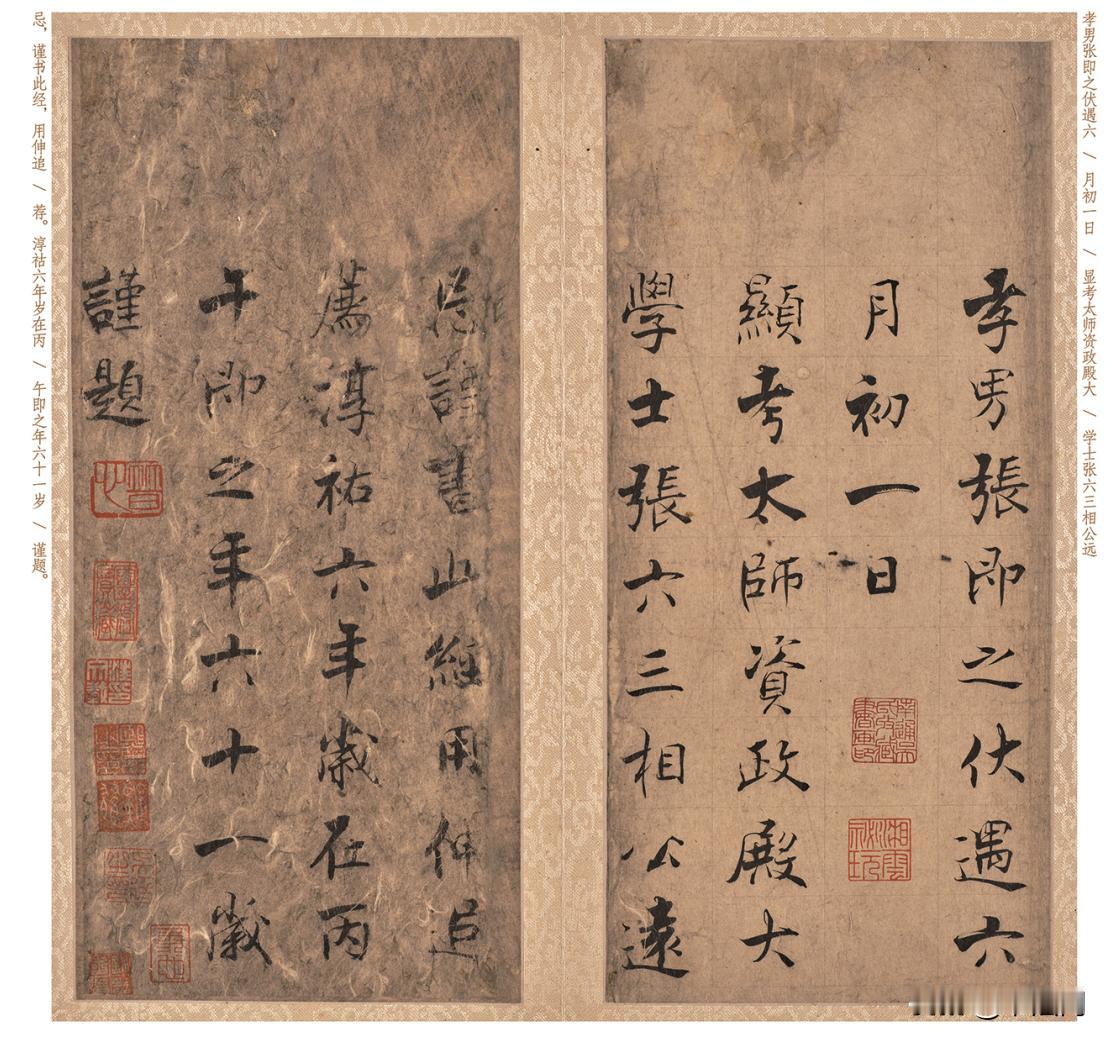 孝男张即之伏遇六 / 月初一日 / 显考太师资政殿大 / 学士张六三相公远
孝男張即之伏遇六
月初一日
顯考太師資政殿大
學士張六三相公遠
忌謹書此經用伸追
薦淳祐六年歲在丙
午即之年六十一歲
謹題
忌，谨书此经，用伸追 / 荐。淳祜六年岁在丙 / 午即之年六十一岁 / 谨题。